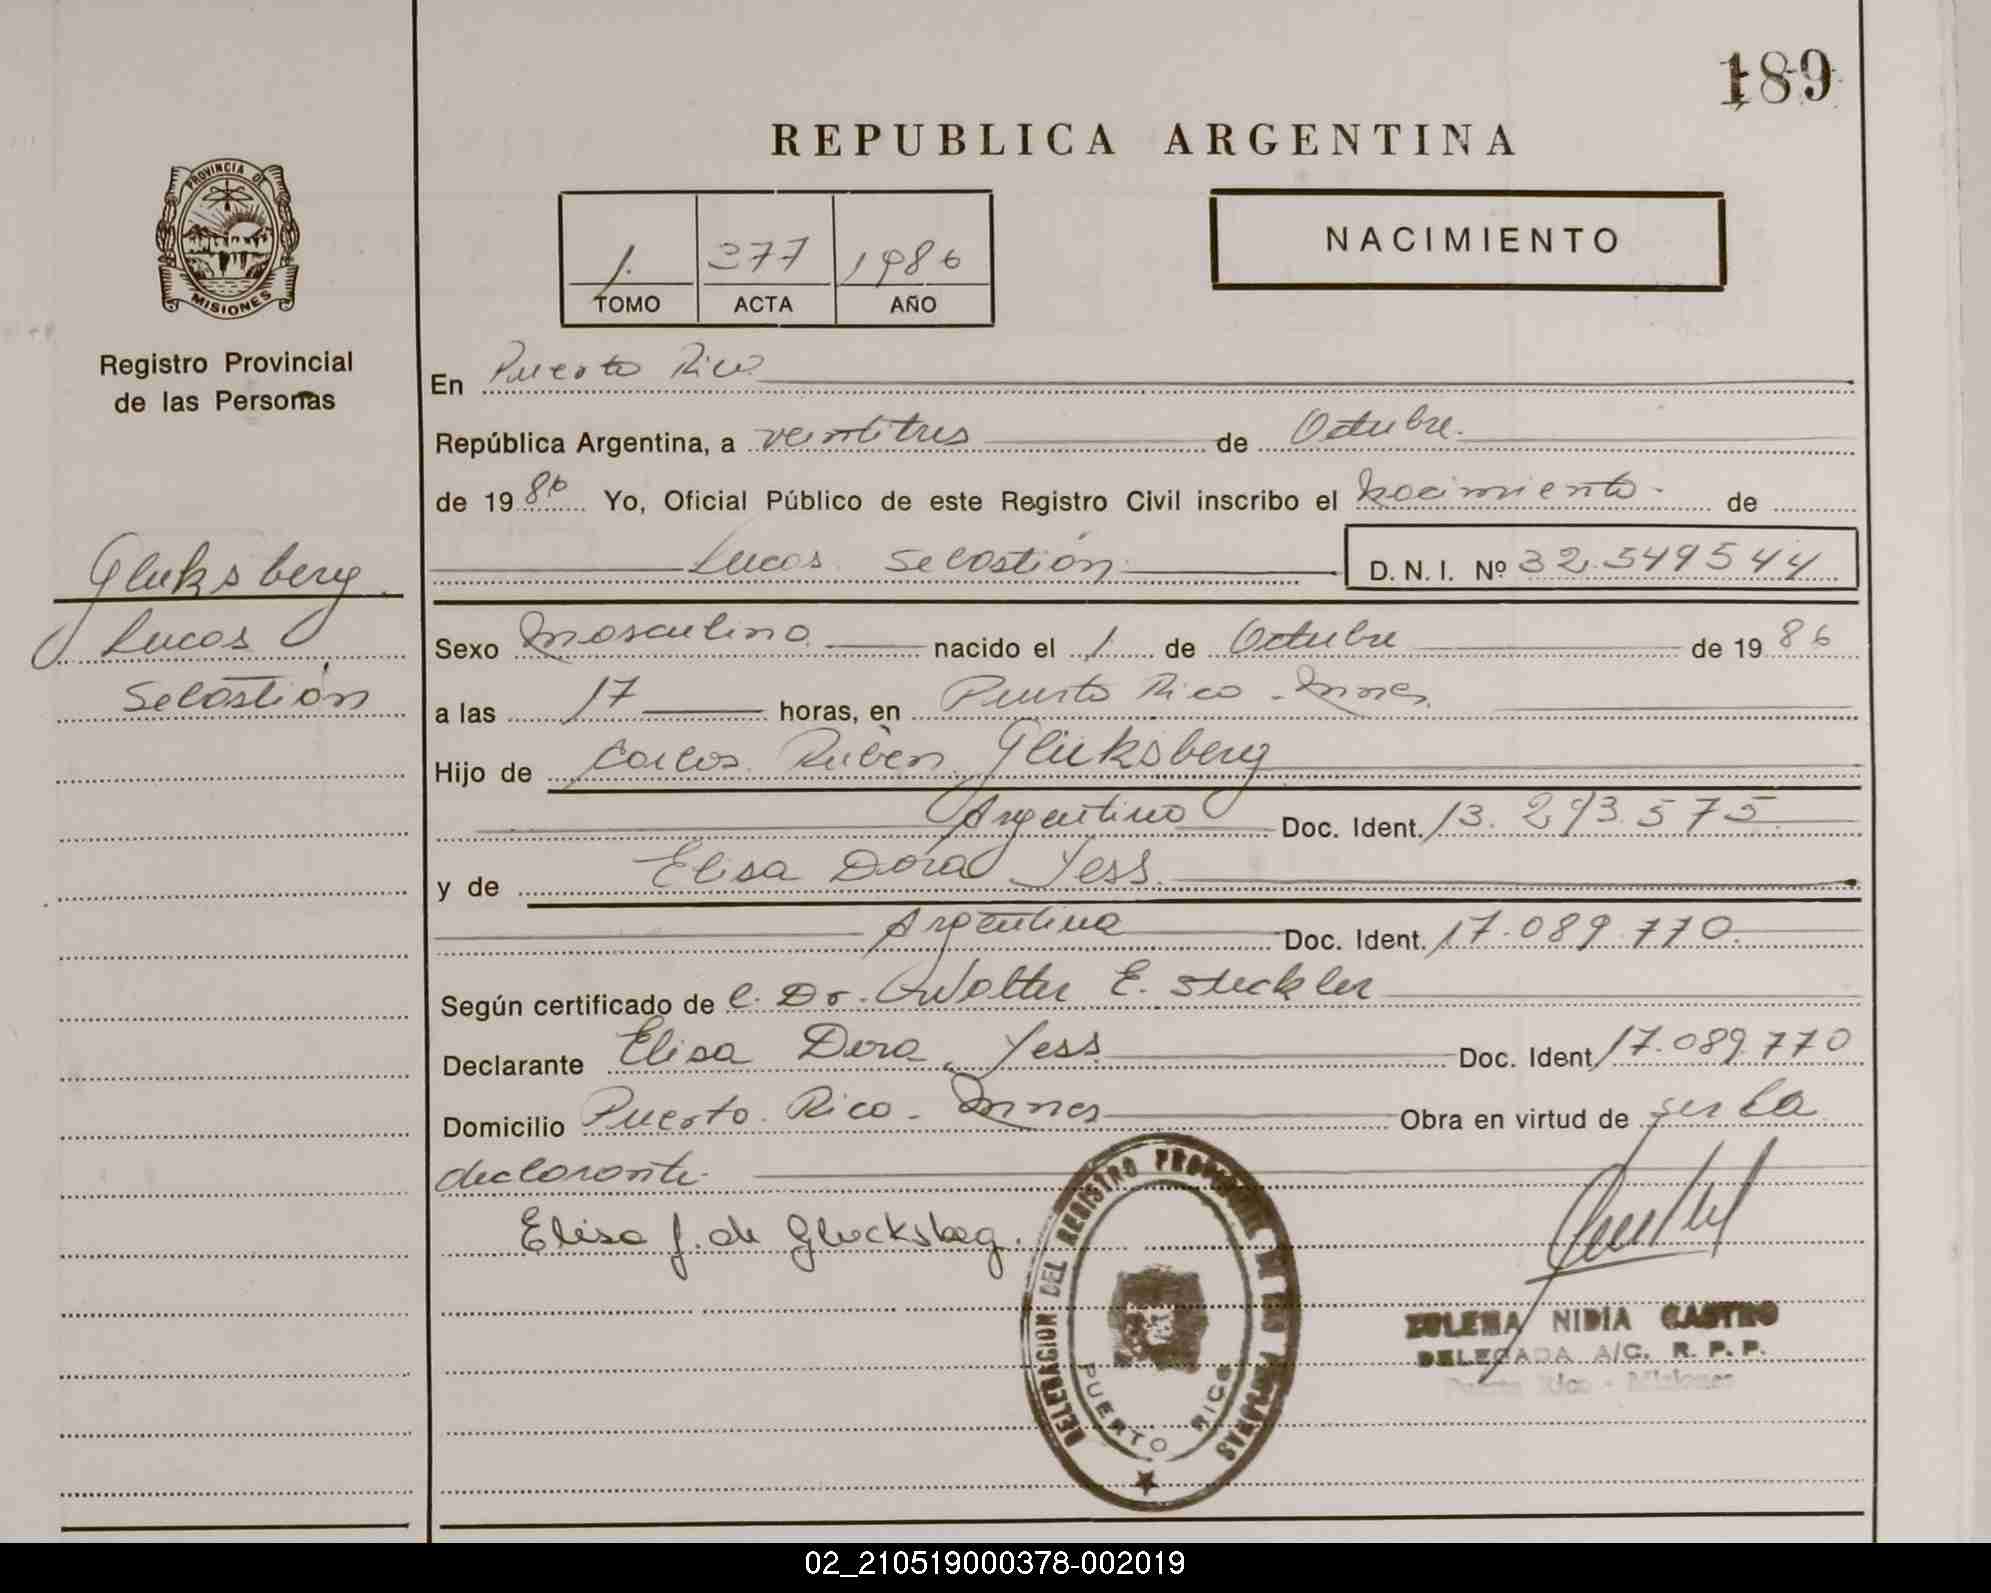 189
REPUBLICA ARGENTINA
PROVINCIA DE
MISIONES
Registro Provincial
de las Personas
1. 377 1986
TOMO ACTA AÑO
NACIMIENTO
En Puerto Rico
República Argentina, a veintitres de Octubre.
de 1986 Yo, Oficial Público de este Registro Civil inscribo el Nacimiento. de
Lucas Sebastián D. N. I. Nº 32.549544
Gluksberg
Lucas
Sebastián
Sexo Masculino nacido el 1 de Octubre de 1986
a las 17 horas, en Puerto Rico - Mnes
Hijo de Carlos Rubén Glüksberg
Argentino Doc. Ident. 13.293.575
y de Elisa Dora Yess
Argentina Doc. Ident. 17.089.770
Según certificado de l. Dr. Walter E. Steckler
Declarante Elisa Dora Yess Doc. Ident 17.089.770
Domicilio Puerto Rico - Mnes Obra en virtud de ser la
declarante.
Elisa J. de Glucksbeg.
DELEGACION DEL REGISTRO PROVINCIAL DE LAS PERSONAS
PUERTO RICO
ZULEMA NIDIA CASTRO
DELEGADA A/C. R. P. P.
Puerto Rico - Misiones
02_210519000378-002019